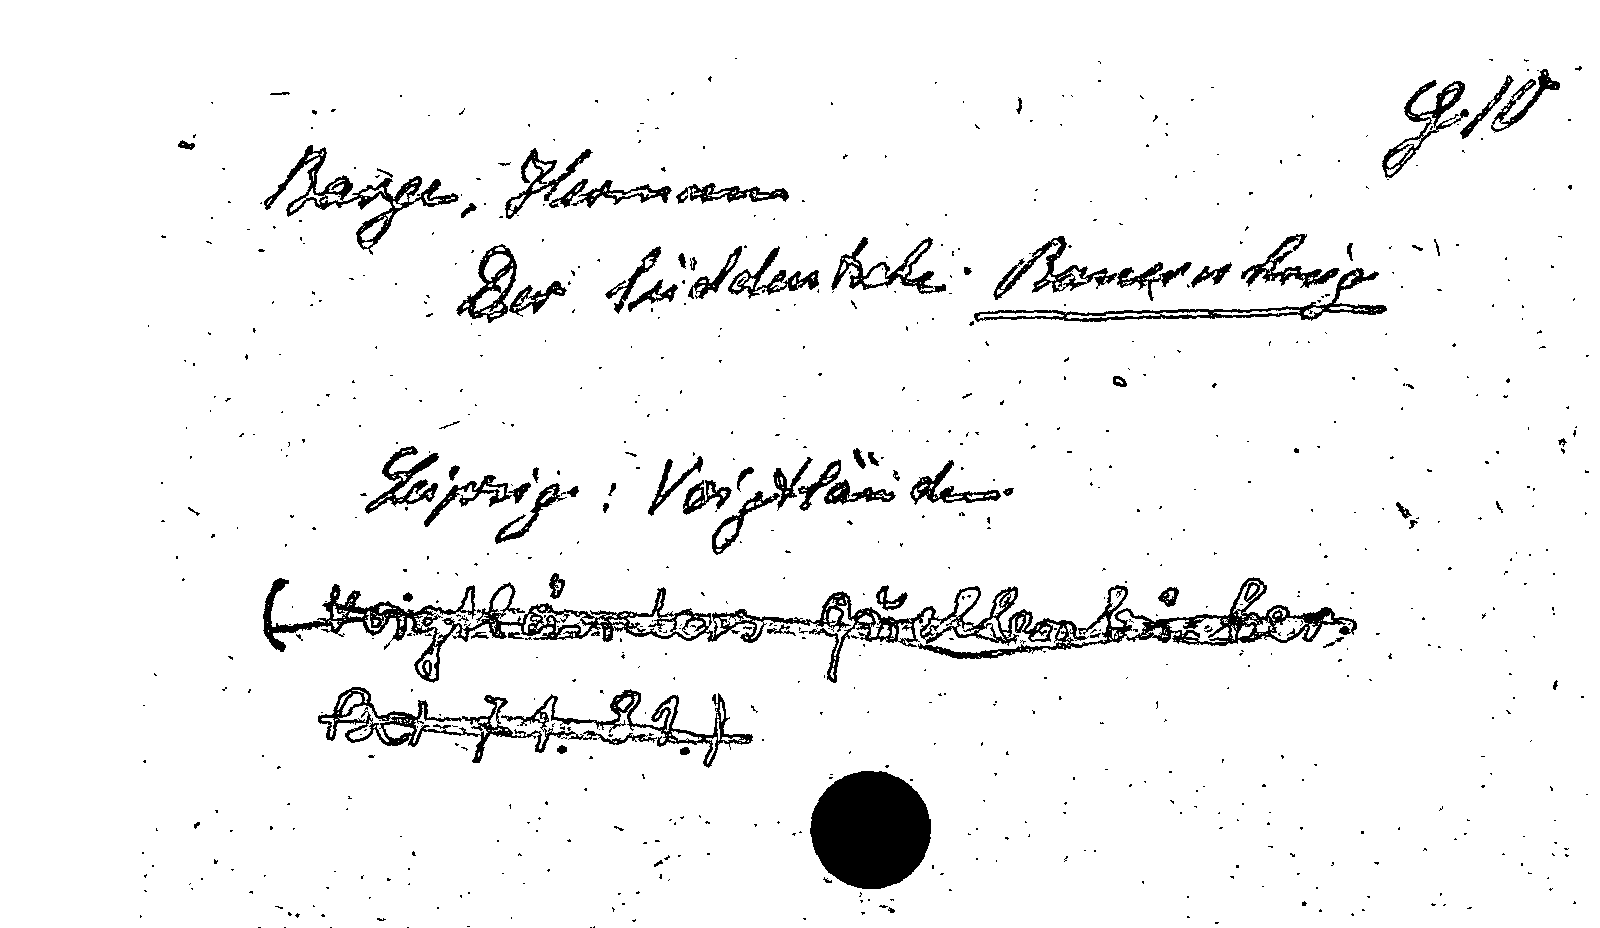 G.10
Barge, Hermann
Der süddeutsche Bauernkrieg
Leipzig : Voigtländer.
(Voigtländers Quellenbücher.
Bd 71. 81.)